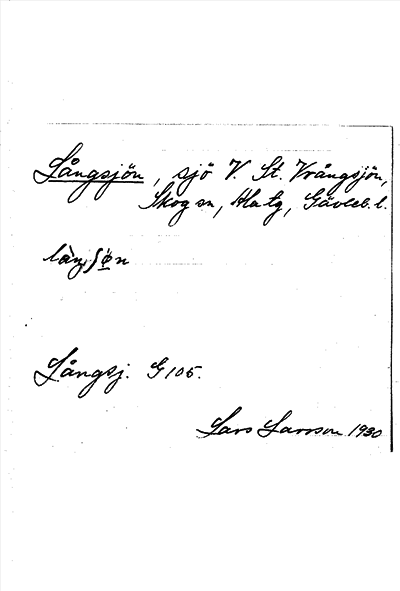 Långsjön, sjö V. St. Vrångsjön,
Skog sn, Ala tg, Gävleb. l.
Långsj. G 105.
Lars Larsson 1930